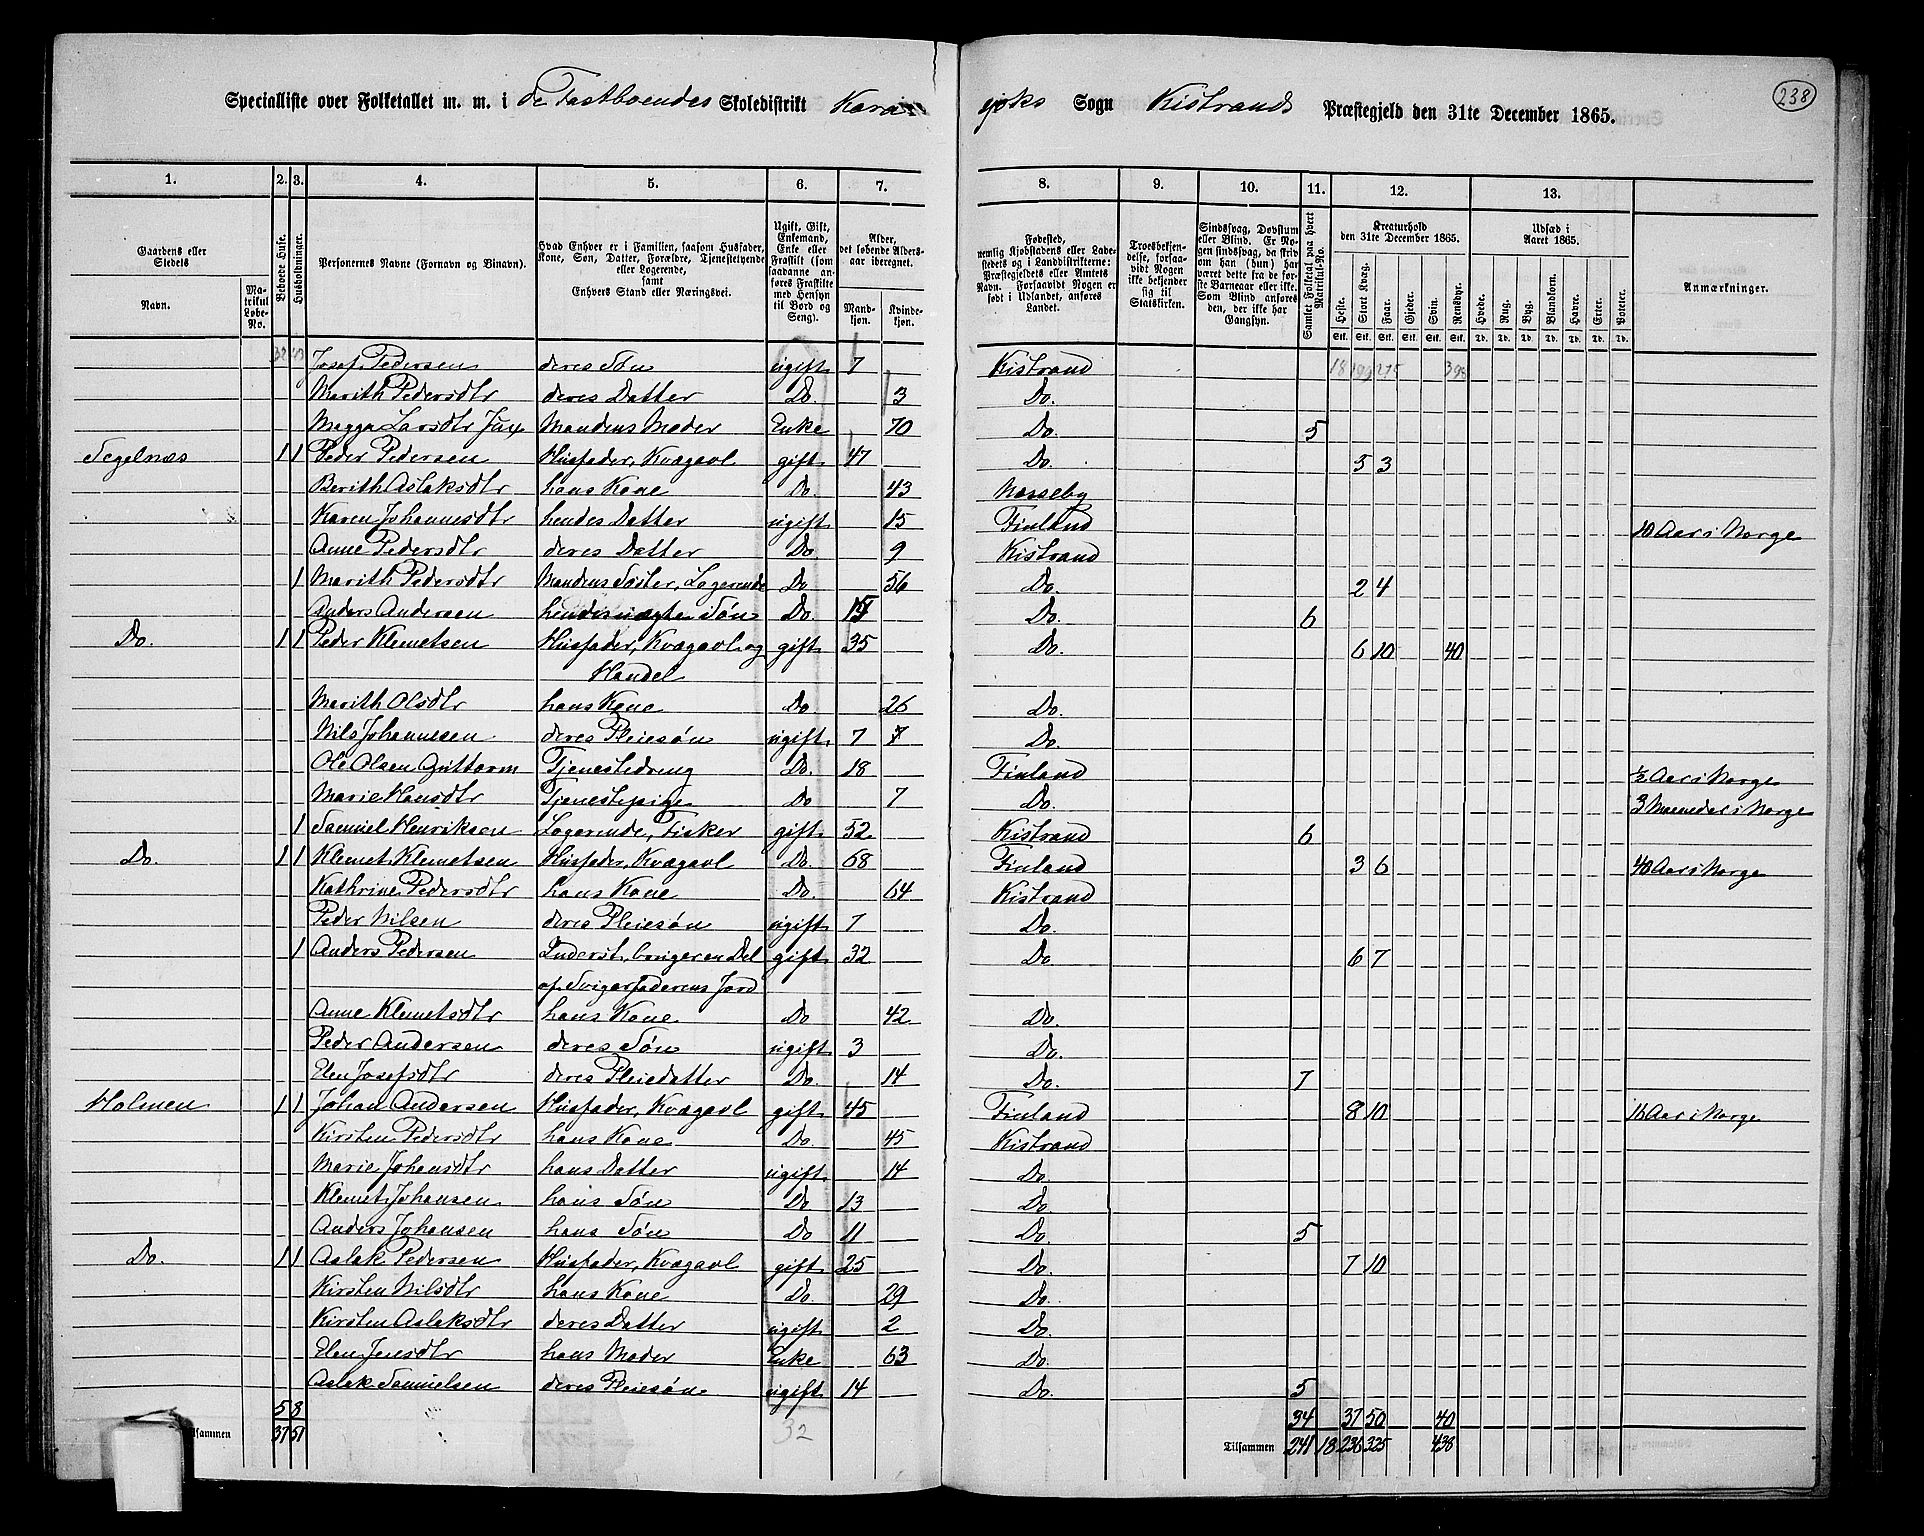 Specialliste over Folketallet m. m. i de Fastboendes Skoledistrikt Kara
sjoks Sogn Kistrands Præstegjeld den 31te December 1865.
238
1. 2. 3. 4. 5. 6. 7. 8. 9. 10. 11. 12. 13.
Gaardens eller Stedets
Navn.
Matrikul Løbe-No.
Beboede Huse.
Husholdninger.
Personernes Navne (Fornavn og Binavn).
Hvad Enhver er i Familien, saasom Husfader, Kone, Søn, Datter, Forældre, Tjenestetyende eller Logerende, samt Enhvers Stand eller Næringsvei.
Ugift, Gift, Enkemand, Enke eller Fraskilt (som saadanne anføres Fraskilte med Hensyn til Bord og Seng).
Alder, det løbende Aldersaar iberegnet.
Mandkjøn.
Kvindekjøn.
Fødested, nemlig Kjøbstadens eller Ladestedets og i Landdistrikterne: Præstegjeldets eller Amtets Navn. Forsaavidt Nogen er født i Udlandet, anføres Landet.
Troesbekjendelse, forsaavidt Nogen ikke bekjender sig til Statskirken.
Sindssvag, Døvstum eller Blind. Er Nogen sindssvag, da skrives om han (hun) har været dette fra de første Barneaar eller ikke. Som Blind anføres den, der ikke har Gangsyn.
Samlet Folketal paa hvert Matrikul-No.
Kreaturhold den 31te December 1865.
Heste. Stort Kvæg. Faar. Gjeder. Svin. Rensdyr.
Udsæd i Aaret 1865.
Hvede. Rug. Byg. Blandkorn. Havre. Erter. Poteter.
Anmærkninger.
Josef Pedersen deres Søn ugift 7 Kistrand
Marith Pedersdtr deres Datter Do. 3 Do.
Megga Larsdtr Jux Mandens Moder Enke 70 Do. 5
Segelnæs 1 1 Peder Pedersen Husfader, Kvægavl gift 47 Do. 5 3
Berith Aslaksdtr hans Kone Do. 43 Nesseby
Karen Johannesdtr hendes Datter ugift 15 Finland 10 Aar i Norge
Anne Pedersdtr deres Datter Do 9 Kistrand
1 Marith Pedersdtr Mandens Søster, Logerende Do. 56 Do. 2 4
Anders Andersen hendes uægte Søn Do. Do. 6
Do. 1 1 Peder Klemetsen Husfader, Kvægavl og gift 35 Do. 6 10 40
Handel
Marith Olsdtr hans Kone Do 26 Do.
Nils Johannesen deres Pleiesøn ugift 7 7 Do.
Ole Olsen Guttorm Tjenestedreng Do. 18 Finland ½ Aar i Norge
Marie Hansdtr Tjenestepige Do 7 Do. 3 Maaneder i Norge
1 Samuel Henriksen Logerende, Fisker gift 52 Kistrand 6
Do. 1 1 Klemet Klemetsen Husfader, Kvægavl Do. 68 Finland 3 6 40 Aar i Norge
Kathrine Pedersdtr hans Kone Do. 64 Kistrand
Peder Nilsen deres Pleiesøn ugift 7 Do.
1 Anders Pedersen Inderst, bruger en Del gift 32 Do 6 7
af Svigerfaderens Jord
Anne Klemetsdtr hans Kone Do 42 Do.
Peder Andersen deres Søn ugift 3 Do.
Elen Josefsdtr deres Pleiedatter Do. 14 Do. 7
Holmen 1 1 Johan Andersen Husfader, Kvægavl gift 45 Finland 8 10 16 Aar i Norge
Kirsten Pedersdtr hans Kone Do. 45 Kistrand
Marie Johansdtr hans Datter ugift 14 Do.
Klemet Johansen hans Søn Do 13 Do.
Anders Johansen hans Søn Do 11 Do. 5
Do. 1 1 Aslak Pedersen Husfader, Kvægavl gift 25 Do. 7 10
Kirsten Nilsdtr hans Kone Do. 29 Do.
Kirsten Aslaksdtr deres Datter ugift 2 Do.
Elen Jensdtr hans Moder Enke 63 Do.
Aslak Samuelsen deres Pleiesøn ugift 14 Do. 5
5 8 34 37 50 40
37 51 32 Tilsammen 241 18 236 325 438